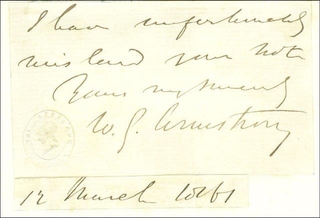 I have unfortunately
mislaid your note
Yours very sincerely
W. G. Armstrong
12 March 1861